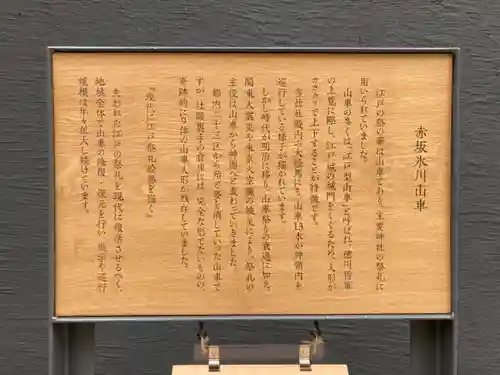 赤坂氷川山車
江戸の祭の華は山車といわれ、主要神社の祭礼に
用いられていました。
山車の多くは、「江戸型山車」と呼ばれ、徳川将軍
の上覧に際し、江戸城の城門をくぐるため、人形が
カラクリで上下することが特徴です。
当社社殿内の大絵馬にも、山車13本が神領内を
巡行している様子が描かれています。
しかし時代が明治に移り、山車祭りの衰退に加え、
関東大震災や東京大空襲の戦火により、祭礼の
主役は山車から神輿へと変わっていきました。
都内二十三区から殆ど姿を消していった山車で
すが、社殿裏手の倉庫には、完全な形でないものの、
奇跡的に9体の山車人形が残存していました。
『現代に江戸祭礼絵巻を描く』
失われた江戸の祭礼を現代に復活させるべく、
地域全体で山車の修復・復元を行い
規模は年々拡大し続けています。